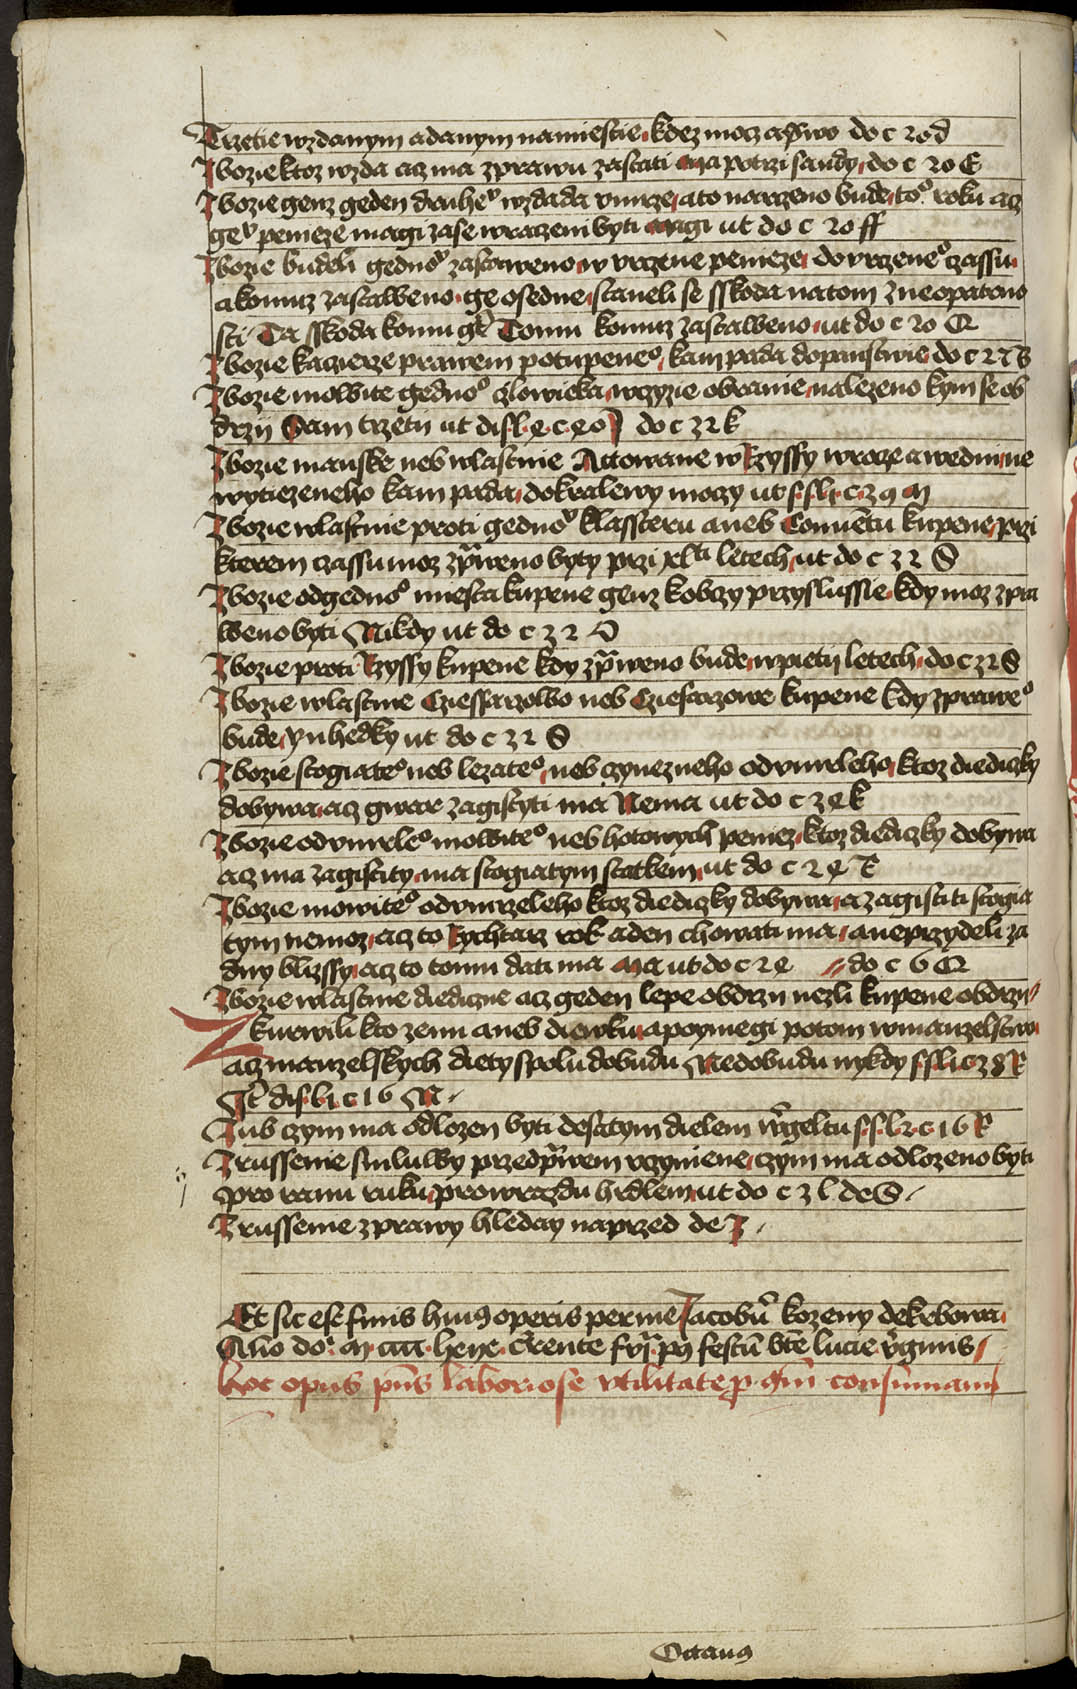 Trzetie wzdanym a danym namiestie kdez mocz a pwo do c 20 d
Zbozie ktoz wzda acz ma zprawu zastati Ma potrzi saudy do c 20 E
Zbozie genz geden druheº wzdada vmrze ato narzeno bude toº roku acz
geº penieze magi zase wraczeni byti Magi ut do c 20 ff
Zbozie budeli gednoº zastaweno w vrczene penieze do vrczeneº czassu
akomuz zastalbeno ge osedne staneli se sskoda natom zneopatrno
sti Ta sskoda komu gt Tomu komuz zastalbeno ut do c 20 Q
Zbozie kaczierze prawem potupeneº kam pada dopanstwie do c 27 B
Zbozie molbite gednoº czlowieka wczyzie obranie nalezeno kym se ob
drzij Sam trzetij ut dis l e c 90 do c 32 k
Zbozie manske neb wlastnie Attowane w Rzyssy wrocze a wedni ne
wytiezeneho kam pada do kralewy moczy ut s s l r c 29 M
Zbozie wlastnie proti gednoº klassteru aneb Conuetu kupene przi
kterem czassu moz zprweno byty przi xl letech ut do c 32 S
Zbozie odgednoº miesta kupene genz kobczy przyslussie kdy moz zpra
weno byti Nikdy ut do c 32 O
Zbozie proti Rzyssy kupene kdy zprweno bude w pietij letech do c 32 S
Zbozie wlastnie Cziessarzolbo neb Cziesarzowe kupene kdy zpraweº
bude ynhedky ut do c 32 S
Zbozie stogiateº neb lezateº neb czynezneho odvmrleho ktoz diediczky
dobywa acz gwar zagistyti ma Nema ut do c 29 k
Zbozie odvmrleº mowiteº neb hotowych peniez ktoz diediczky dobywa
acz ma zagistity ma stogiatym statkem ut do c 29 T
Zbozie mowiteº odvmrzeleho ktoz diediczky dobywa a zagistiti stogia
tym nemoz acz to Rychtarz rok a den chowati ma aneprzydeli za
dny blizssy acz to tomu dati ma Ma ut do c 29 do c 6 Q
Zbozie wlastnie diediczne acz geden lepe obdrzij nezli kupene obdrzij
Zkurwili kto zenu aneb diewku a poymegi potom w manzelstwi
acz manzelskych diety spolu dobudu Nedobudu nykdy s s l 1 c 38 R
Gt dis l 1 c 16 N
Zub czym ma odlozen byti desatym dielem wrgeltu s s l 2 c 16 R
Zrussenie smluwy przed prwem vczyniene czym ma odlozeno byti
Pro ranu ruku pro wrazdu hrdlem ut do c 3 l de S
Zrussenie zprawy hleday naprzed de Z
Et sic est finis huius operis per me Jacobu kozeny de krbowa
Ano do M cccc crente fr py festu bte lucie vginis
hoc opus pns laboriose vtilitate p consumani
Octauus